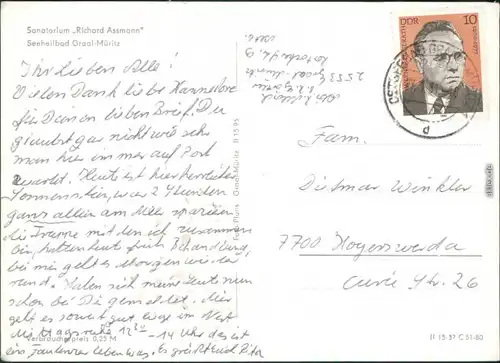 Sanatorium „Richard Assmann"
Seeheilbad Graal-Müritz
Ihr lieben Alle!
Vielen Dank liebe Hannelore
für Deinen lieben Brief. Du
glaubst gar nicht wie sehr
man hier immer auf Post
wartet. Heute ist hier herrlicher
Sonnenschein, war 2 Stunden
ganz allein am Meer spazieren
die Frauen mit den ich zusammen
bin, hatten heute früh Behandlung,
bei mir geht es Morgen wieder
rund. Haben sich meine Leute nun
schon bei Dir gemeldet. Mir
geht es soweit gut liege im Bett
Mittagsruhe 12³⁰ - 14 Uhr das ist
ein Faulenzer leben was. Es grüßt Euch Rita
Verbraucherpreis 0,25 M
Graal-Müritz B 1595
2553 Graal-Müritz
DDR 10
OSTSEEBAD GRAAL
d
Fam.
Dietmar Winkler
7700 Hoyerswerda
Curie Str. 26
II 15 37 C 51-80